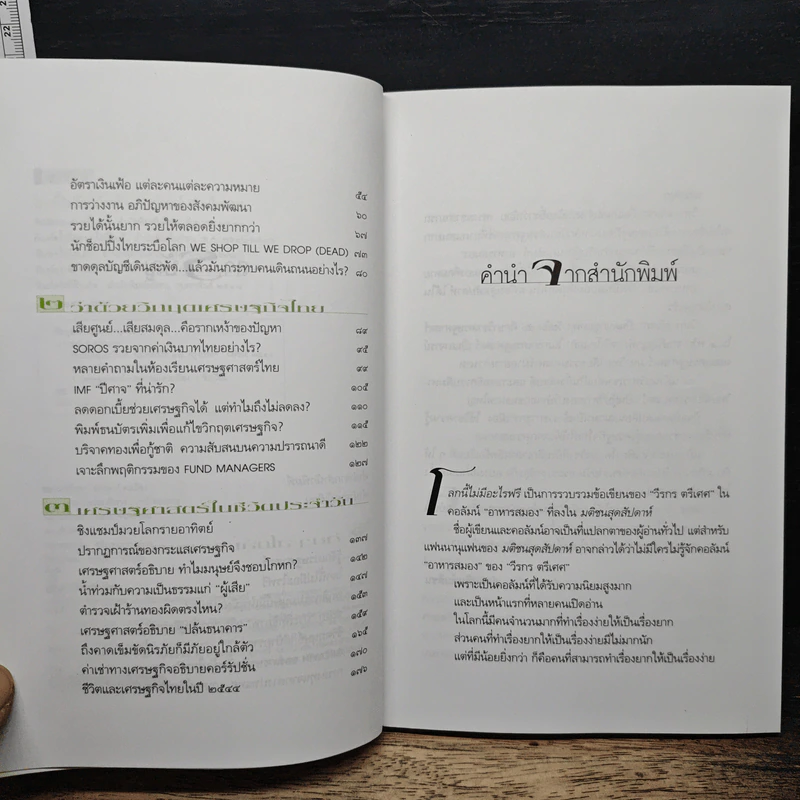 22
อัตราเงินเฟ้อ แต่ละคนแต่ละความหมาย ๕๔
การว่างงาน อภิปัญหาของสังคมพัฒนา ๖๐
รวยได้นั้นยาก รวยให้ตลอดยิ่งยากกว่า ๖๗
นักช็อปปิ้งไทยระบือโลก WE SHOP TILL WE DROP (DEAD) ๗๓
ขาดดุลบัญชีเดินสะพัด...แล้วมันกระทบคนเดินถนนอย่างไร? ๘๐
๒ ว่าด้วยวิกฤตเศรษฐกิจไทย
เสียศูนย์...เสียสมดุล...คือรากเหง้าของปัญหา ๘๙
SOROS รวยจากค่าเงินบาทไทยอย่างไร? ๙๕
หลายคำถามในห้องเรียนเศรษฐศาสตร์ไทย ๙๙
IMF "ปีศาจ" ที่น่ารัก? ๑๐๕
ลดดอกเบี้ยช่วยเศรษฐกิจได้ แต่ทำไมถึงไม่ลดลง? ๑๑๐
พิมพ์ธนบัตรเพิ่มเพื่อแก้ไขวิกฤตเศรษฐกิจ? ๑๑๕
บริจาคทองเพื่อกู้ชาติ ความสับสนบนความปรารถนาดี ๑๒๒
เจาะลึกพฤติกรรมของ FUND MANAGERS ๑๒๗
๓ เศรษฐศาสตร์ในชีวิตประจำวัน
ชิงแชมป์มวยโลกรายอาทิตย์
ปรากฏการณ์ของกระแสเศรษฐกิจ ๑๓๗
เศรษฐศาสตร์อธิบาย ทำไมมนุษย์จึงชอบโกหก? ๑๔๒
น้ำท่วมกับความเป็นธรรมแก่ "ผู้เสีย" ๑๔๗
ตำรวจเฝ้าร้านทองผิดตรงไหน? ๑๕๓
เศรษฐศาสตร์อธิบาย "ปล้นธนาคาร" ๑๕๙
ถึงคาดเข็มขัดนิรภัยก็มีภัยอยู่ใกล้ตัว ๑๖๕
ค่าเช่าทางเศรษฐกิจอธิบายคอร์รัปชั่น ๑๗๐
ชีวิตและเศรษฐกิจไทยในปี ๒๕๔๔ ๑๗๖
คำนำ จากสำนักพิมพ์
โลกนี้ไม่มีอะไรฟรี เป็นการรวบรวมข้อเขียนของ "วีรกร ตรีเศศ" ใน
คอลัมน์ "อาหารสมอง" ที่ลงใน มติชนสุดสัปดาห์
ชื่อผู้เขียนและคอลัมน์อาจเป็นที่แปลกตาของผู้อ่านทั่วไป แต่สำหรับ
แฟนนานุแฟนของ มติชนสุดสัปดาห์ อาจกล่าวได้ว่าไม่มีใครไม่รู้จักคอลัมน์
"อาหารสมอง" ของ "วีรกร ตรีเศศ"
เพราะเป็นคอลัมน์ที่ได้รับความนิยมสูงมาก
และเป็นหน้าแรกที่หลายคนเปิดอ่าน
ในโลกนี้มีคนจำนวนมากที่ทำเรื่องง่ายให้เป็นเรื่องยาก
ส่วนคนที่ทำเรื่องยากให้เป็นเรื่องง่ายมีไม่มากนัก
แต่ที่มีน้อยยิ่งกว่า ก็คือคนที่สามารถทำเรื่องยากให้เป็นเรื่องง่าย